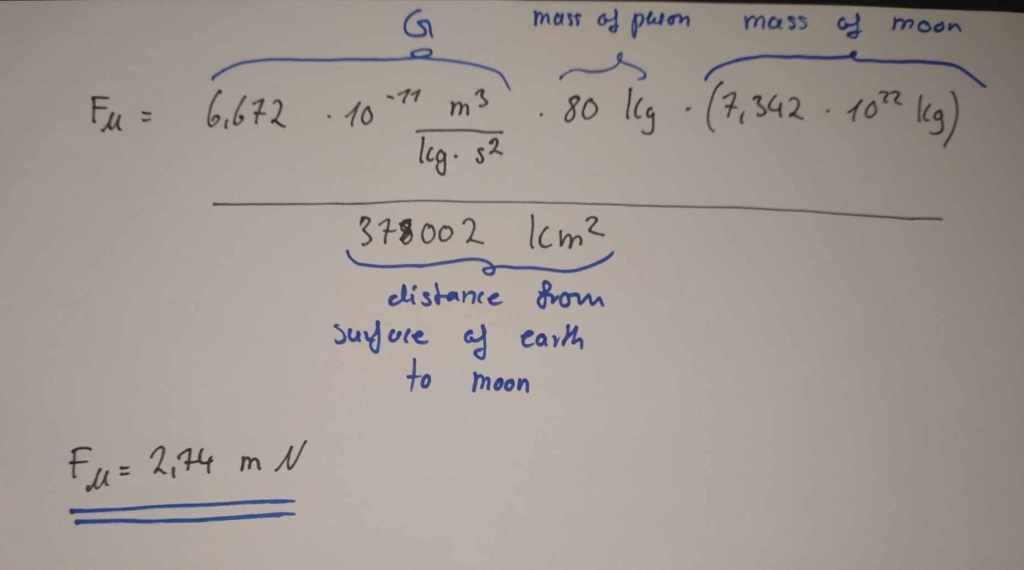 G mass of person mass of moon
Fμ = 6,672 · 10⁻¹¹ m³/(kg · s²) · 80 kg · (7,342 · 10²² kg)
378002 km²
distance from
surface of earth
to moon
Fμ = 2,74 m N